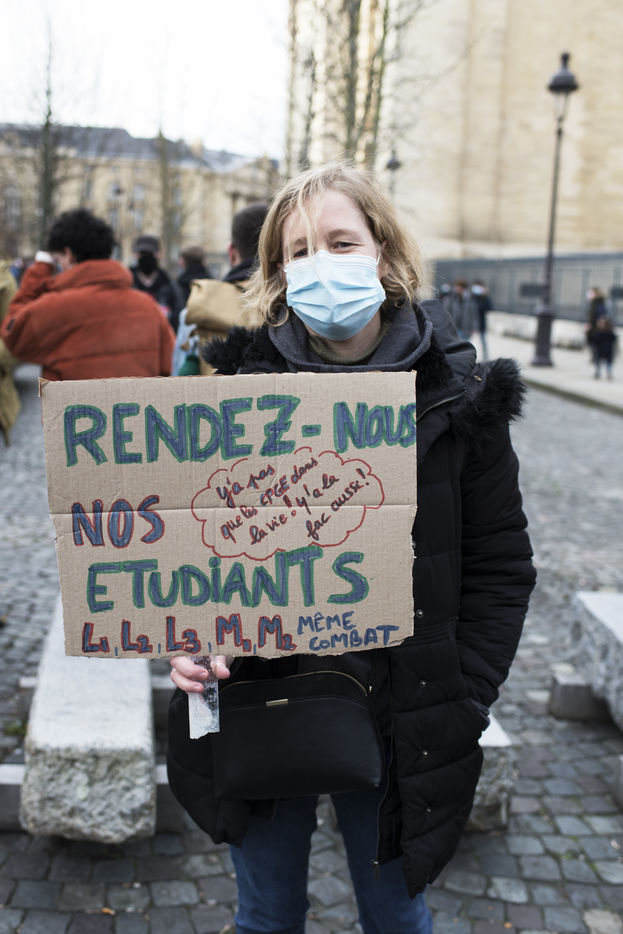 RENDEZ-NOUS
NOS
y'a pas
que les CPGE dans
la vie! y'a la
fac aussi!
ETUDIANTS
L1, L2, L3, M1, M2
MÊME
COMBAT